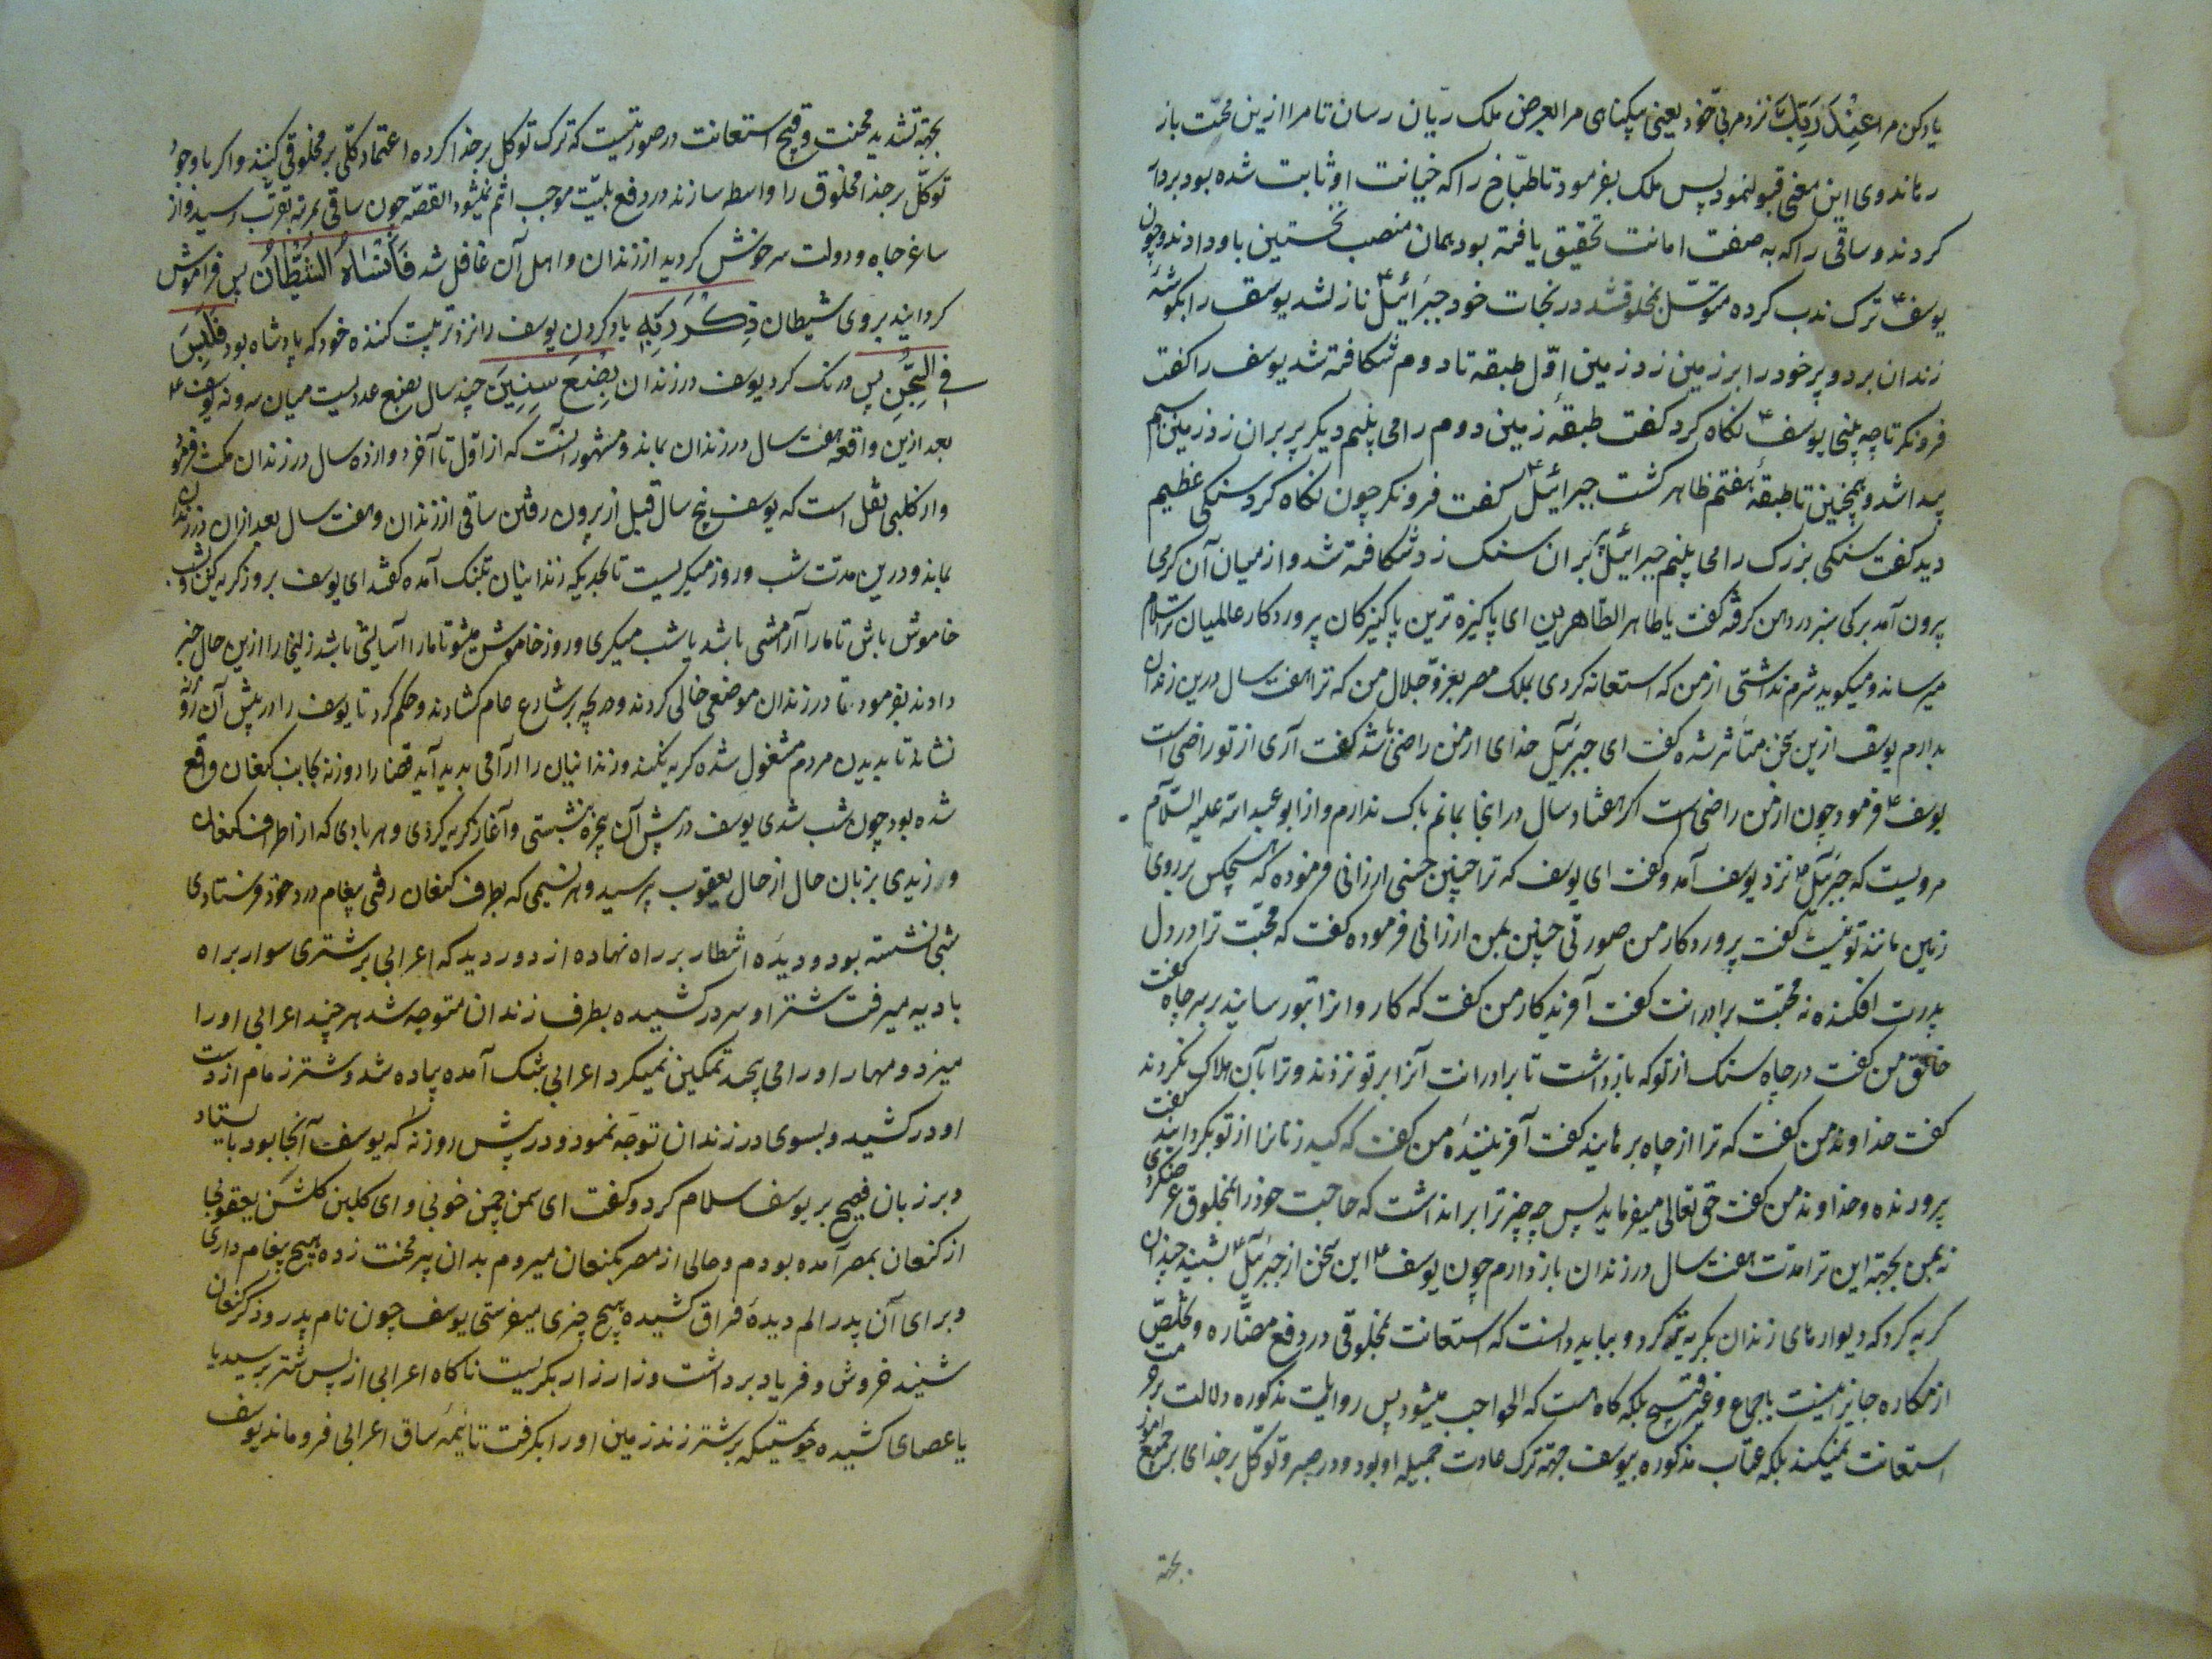 یاد کن مرا عِنْدَ رَبِّكَ نزد مربی خود یعنی بیکناهی مرا بعرض ملک ریان رسان تا مرا ازین محنت باز
رهاند وی این معنی قبول نمود پس ملک بفرمود تا طباخ را که خیانت او ثابت شده بود بردار
کردند و ساقی را که به صفت امانت تحقیق یافته بود همان منصب نخستین باو دادند و چون
یوسف ترک ندب کرده متوسل بمخلوق شد در نجات خود جبرائیل نازل شد یوسف را بکوشهٔ
زندان برد و پر خود را بر زمین زد زمین اول طبقه تا دوم شکافته شد یوسف را کفت
فرو نکر تا چه بینی یوسف نکاه کرد کفت طبقهٔ زمین دوم را می بینم دیکر پر بران زد زمین سیم
پیدا شد و همچنین تا طبقهٔ هفتم ظاهر کشت جبرائیل کفت فرو نکر چون نکاه کرد سنکی عظیم
دید کفت سنکی بزرک را می بینم جبرائیل پر بران سنک زد شکافته شد و از میان آن کرمی
بیرون آمد برکی سبز در دهن کرفته کفت یا طاهر الطاهرین ای پاکیزه ترین پاکیزکان پروردکار عالمیان ترا سلام
میرساند و میکوید شرم نداشتی از من که استعانه کردی بملک مصر بعزو جلال من که ترا هفت سال درین زندان
بدارم یوسف ازین سخن متأثر شده کفت ای جبرئیل خدای از من راضی باشد کفت آری از تو راضی است
یوسف فرمود چون از من راضی است اکر هفتاد سال در اینجا بمانم باک ندارم و از ابو عبد الله علیه السلام
مرویست که جبرئیل نزد یوسف آمد و کفت ای یوسف که ترا چنین حسنی ارزانی فرموده که هیچکس بر روی
زمین مانند تو نیست کفت پروردکار من صورتی چنین بمن ارزانی فرموده کفت که محبت ترا در دل
پدرت افکنده نه محبت برادرانت کفت آفریدکار من کفت که کاروانرا بتو رسانید بر سر چاه کفت
خالق من کفت در چاه سنک از تو که بازداشت تا برادرانت آنرا بر تو نزدند و ترا بآن هلاک نکردند
کفت خداوند من کفت که ترا از چاه برهانید کفت آفرینندهٔ من کفت که کید زنانرا از تو بکردانید کفت
پرورنده و خداوند من کفت حق تعالی میفرماید پس چه چیز ترا بر انداشت که حاجت خود را بمخلوق عرض کردی
نه بمن بجهته این ترا مدت هفت سال در زندان باز دارم چون یوسف این سخن از جبرئیل بشنید چندان
کریه کرد که دیوارهای زندان بکریه کرد و بباید دانست که استعانت بمخلوقی در دفع مضاره و تخلص
از مکاره جایز است باجماع و غیر قبیح بلکه کاه هست که واجب میشود پس روایات مذکوره دلالت بر حرمت
استعانت نمیکند بلکه عتاب مذکوره بیوسف جهته ترک عادت جمیله او بود در صبر و توکل بر خدای بر جمیع امور
بجهته
بجهته تشدید محنت و قبح استعانت در صورتیست که ترک توکل بر خدا کرده اعتماد کلی بر مخلوقی کنند و اکر با وجود
توکل بر خدا مخلوق را واسطه سازند در دفع بلیت موجب اثم نمیشود القصه چون ساقی بمرتبه تقرب رسید و از
ساغر جاه و دولت سرخوش کردید از زندان و اهل آن غافل شد فَأَنْسَاهُ الشَّيْطَانُ پس فراموش
کردانید بر وی شیطان ذِكْرَ رَبِّهِ یاد کردن یوسف را نزد تربیت کننده خود که پادشاه بود فَلَبِثَ
فِي السِّجْنِ پس درنک کرد یوسف در زندان بِضْعَ سِنِينَ چند سال بضع عددیست میان سه و نه یوسف
بعد ازین واقعه هفت سال در زندان بماند و مشهور آنست که از اول تا آخر دوازده سال در زندان مکث فرمود
و از کلبی نقل است که یوسف پنج سال قبل از بیرون رفتن ساقی از زندان و هفت سال بعد ازان در زندان
بماند و درین مدت شب و روز میکریست تا بحدیکه زندانیان بتنک آمده کفتند ای یوسف بروز کریه کن و شب
خاموش باش تا ما را آرامشی باشد یا شب میکری و روز خاموش میشو تا ما را آسایشی باشد زلیخا را ازین حال خبر
دادند بفرمود تا در زندان موضعی خالی کردند و دریچه بر شارع عام کشادند و حکم کرد تا یوسف را در پیش آن روزنه
نشاند تا بدیدن مردم مشغول شده کریه نکند و زندانیان را آرامی پدید آید قضا را روزنه بجانب کنعان واقع
شده بود چون شب شدی یوسف در پیش آن پنجره نشستی و آغاز کریه کردی و هر بادی که از طرف کنعان
وزیدی بزبان حال از حال یعقوب پرسید و هر نسیمی که بطرف کنعان رفتی پیغام درد خود فرستادی
شبی نشسته بود و دیدهٔ انتظار بر راه نهاده از دور دید که اعرابی بر شتری سوار بر راه
بادیه میرفت شتر او سر در کشیده بطرف زندان متوجه شد هر چند اعرابی او را
میزد و مهار او را می پیچید تمکین نمیکرد اعرابی بتنک آمده پیاده شد و شتر زمام از دست
او در کشید و بسوی در زندان توجه نمود و در پیش روزنه که یوسف آنجا بود بایستاد
و بر زبان فصیح بر یوسف سلام کرد و کفت ای سمن چمن خوبی و ای کلبن کلشن یعقوبی
از کنعان بمصر آمده بودم و حالی از مصر بکنعان میروم بدان پیر محنت زده هیچ پیغام داری
و برای آن پدر الم دیدهٔ فراق کشیده هیچ چیزی میفرستی یوسف چون نام پدر و ذکر کنعان
شنید خروش و فریاد برداشت و زار زار بکریست ناکاه اعرابی از پس شتر برسید با
با عصای کشیده خواستیکه بر شتر زند زمین او را بکرفت تا نیمهٔ ساق اعرابی فرو ماند یوسف